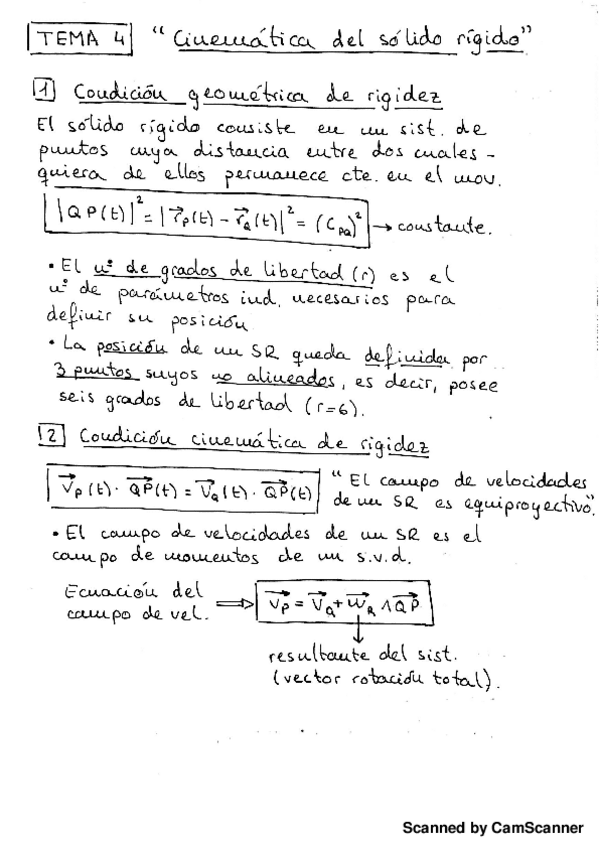 TEMA 4 "Cinemática del sólido rígido"
1 Condición geométrica de rigidez
El sólido rígido consiste en un sist. de
puntos cuya distancia entre dos cuales-
quiera de ellos permanece cte. en el mov.
|QP(t)|² = |r⃗_P(t) - r⃗_Q(t)|² = (C_PQ)² → constante.
• El nº de grados de libertad (r) es el
nº de parámetros ind. necesarios para
definir su posición
• La posición de un SR queda definida por
3 puntos suyos no alineados, es decir, posee
seis grados de libertad (r=6).
2 Condición cinemática de rigidez
V⃗_P(t) · QP⃗(t) = V⃗_Q(t) · QP⃗(t) "El campo de velocidades
de un SR es equiproyectivo".
• El campo de velocidades de un SR es el
campo de momentos de un s.v.d.
Ecuación del
campo de vel. ⟹ V⃗_P = V⃗_Q + w⃗_R ∧ QP⃗
resultante del sist.
(vector rotación total).
Scanned by CamScanner